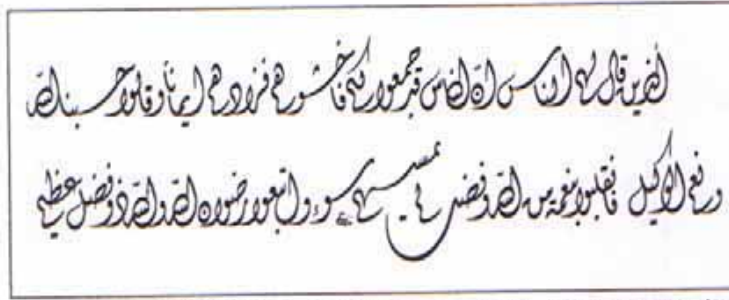 الذين قال لهم الناس ان الناس قد جمعوا لكم فاخشوهم فزادهم ايمانا وقالوا حسبنا الله
ونعم الوكيل فانقلبوا بنعمة من الله وفضل لم يمسسهم سوء واتبعوا رضوان الله والله ذو فضل عظيم